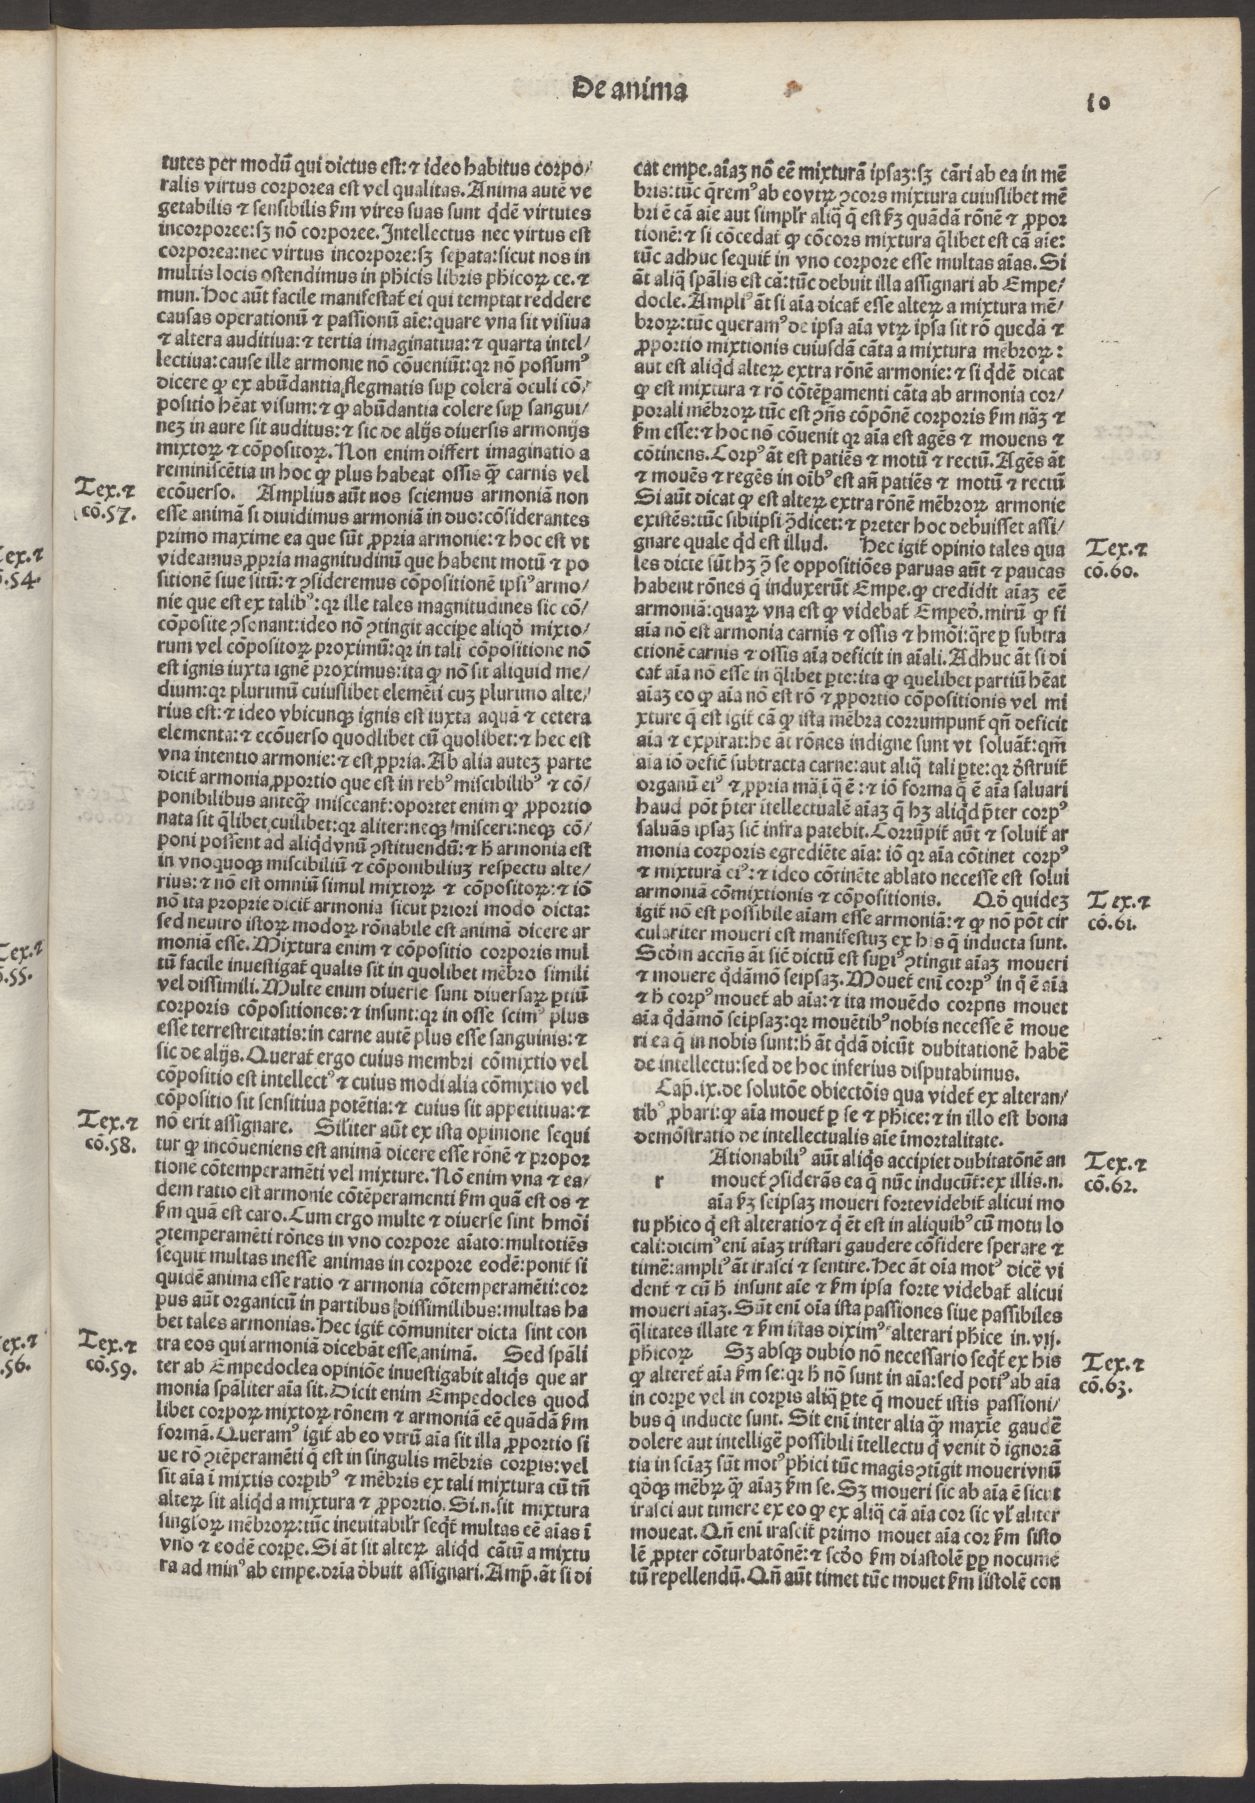 De anima
10
tutes per modū qui dictus est: ⁊ ideo habitus corpo/
ralis virtus corporea est vel qualitas. Anima autē ve
getabilis ⁊ sensibilis ẜm vires suas sunt q̇dē virtutes
incorporee: sꝫ nō corporee. Intellectus nec virtus est
corporea: nec virtus incorpore: sꝫ sepata: sicut nos in
multis locis ꝯstendimus in ph̄icis libris ph̄icoꝝ ce. ⁊
mun. Hoc aūt facile manifestat̄ ei qui temptat reddere
causas operationū ⁊ passionū aīe: quare vna sit visiua
⁊ altera auditiua: ⁊ tertia imaginatiua: ⁊ quarta intel/
lectiua: cause ille armonie nō cōueniūt: qr nō possumꝰ
dicere ꝙ ex abūdantia flegmatis suꝑ colerā oculi cō/
positio hēat visum: ⁊ ꝙ abūdantia colere suꝑ sangui/
neꝫ in aure sit auditus: ⁊ sic de alijs diuersis armonijs
mixtoꝝ ⁊ cōpositoꝝ. Non enim differt imaginatio a
reminiscētia in hoc ꝙ plus habeat ossis ꝙ̄ carnis vel
Tex. ⁊
cō. 57.
ecōuerso. Amplius aūt nos sciemus armoniā non
esse animā si diuidimus armoniā in duo: cōsiderantes
primo maxime ea que sūt ꝓpria armonie: ⁊ hoc est vt
videamus ꝓpria magnitudinū que habent motū ⁊ po
sitionē siue sitū: ⁊ ꝯsideremus cōpositionē ipsiꝰ armo/
nie que est ex talibꝰ: qr ille tales magnitudines sic cō/
cōposite ꝯsonant: ideo nō ꝯtingit accipe aliqḋ mixto/
rum vel cōpositoꝝ proximū: qr in tali cōpositione nō
est ignis iuxta ignē proximus: ita ꝙ nō sit aliquid me/
dium: qr plurimū cuiuslibet elemēti cuꝫ plurimo alte/
rius est: ⁊ ideo vbicunqꝫ ignis est iuxta aquā ⁊ cetera
elementa: ⁊ ecōuerso quodlibet cū quolibet: ⁊ hec est
vna intentio armonie: ⁊ est ꝓpria. Ab alia auteꝫ parte
dicit̄ armonia ꝓportio que est in rebꝰ miscibilibꝰ ⁊ cō/
ponibilibus anteꝙ̄ misceant̄: oportet enim ꝙ ꝓportio
nata sit q̄libet cuilibet: qr aliter: neqꝫ misceri: neqꝫ cō/
poni possent ad aliqḋ vnū ꝯstituendū: ⁊ h̄ armonia est
in vnoquoqꝫ miscibiliū ⁊ cōponibiliuꝫ respectu alte/
rius: ⁊ nō est omniū simul mixtoꝝ ⁊ cōpositoꝝ: ⁊ iō
nō ita proprie dicit̄ armonia sicut priori modo dicta:
sed neutro istoꝝ modoꝝ rōnabile est animā dicere ar
moniā esse. Mixtura enim ⁊ cōpositio corporis mul
tū facile inuestigat̄ qualis sit in quolibet mēbro simili
vel dissimili. Multe enim diuerse sunt diuersaꝝ ptiū
corporis cōpositiones: ⁊ insunt: qr in osse scimꝰ plus
esse terrestreitatis: in carne autē plus esse sanguinis: ⁊
sic de alijs. Querat̄ ergo cuius membri cōmixtio vel
cōpositio est intellectꝰ ⁊ cuius modi alia cōmixtio vel
cōpositio sit sensitiua potētia: ⁊ cuius sit appetitiua: ⁊
Tex. ⁊
cō. 58.
nō erit assignare. Siliter aūt ex ista opinione sequi
tur ꝙ incōueniens est animā dicere esse rōnē ⁊ propor
tionē cōtemperamēti vel mixture. Nō enim vna ⁊ ea/
dem ratio est armonie cōtēperamenti ẜm quā est os ⁊
ẜm quā est caro. Cum ergo multe ⁊ diuerse sint hmōi
ꝯtemperamēti rōnes in vno corpore aīato: multotiēs
sequit̄ multas inesse animas in corpore eodē: ponit̄ si
quidē anima esse ratio ⁊ armonia cōtemperamēti: cor
pus aūt organicū in partibus dissimilibus: multas ha
bet tales armonias. Hec igit̄ cōmuniter dicta sint con
Tex. ⁊
cō. 59.
tra eos qui armoniā dicebāt esse animā. Sed spāli
ter ab Empedoclea opiniōe inuestigabit aliq̇s que ar
monia spāliter aīa sit. Dicit enim Empedocles quod
libet corpoꝝ mixtoꝝ rōnem ⁊ armoniā eē quādā ẜm
formā. Queramꝰ igit̄ ab eo vtrū aīa sit illa ꝓportio si
ue rō ꝯtēperamēti q̄ est in singulis mēbris corpis: vel
sit aīa ī mixtis corpibꝰ ⁊ mēbris ex tali mixtura cū tn̄
alteꝝ sit aliqḋ a mixtura ⁊ ꝓportio. Si. n. sit mixtura
singloꝝ mēbroꝝ: tūc ineuitabilr̄ seqt̄ multas eē aīas ī
vno ⁊ eodē corpe. Si āt sit alteꝝ aliqḋ cātū a mixtu
ra ad minꝰ ab empe. dr̄ia ḋbuit assignari. Amp̄. āt si di
cat empe. aīaꝫ nō eē mixturā ipsaꝫ: sꝫ cāri ab ea in mē
bris: tūc q̄remꝰ ab eo vtꝝ ꝯcors mixtura cuiuslibet mē
bri ē cā aīe aut simplr̄ aliq̄ q̄ est ẜꝫ quādā rōnē ⁊ ꝓpor
tionē: ⁊ si cōcedat̄ ꝙ cōcors mixtura q̄libet est cā aīe:
tūc adhuc sequit̄ in vno corpore esse multas aīas. Si
āt aliq̄ spālis est cā: tūc debuit illa assignari ab Empe/
docle. Ampliꝰ āt si aīa dicat̄ esse alteꝝ a mixtura mē/
broꝝ: tūc queramꝰ de ipsa aīa vtꝝ ipsa sit rō quedā ⁊
ꝓportio mixtionis cuiusdā cāta a mixtura mēbroꝝ:
aut est aliqḋ alteꝝ extra rōnē armonie: ⁊ si q̇dē dicat
ꝙ est mixtura ⁊ rō cōtēpamenti cāta ab armonia cor/
porali mēbroꝝ tūc est ꝯn̄s cōpōnē corporis ẜm nāꝫ ⁊
ẜm esse: ⁊ hoc nō cōuenit qr aīa est agēs ⁊ mouens ⁊
cōtinens. Corpꝰ āt est patiēs ⁊ motū ⁊ rectū. Agēs āt
⁊ mouēs ⁊ regēs in oībꝰ est an̄ patiēs ⁊ motū ⁊ rectū
Si aūt dicat ꝙ est alteꝝ extra rōnē mēbroꝝ armonie
existēs: tūc sibiipsi ꝯ̄dicet: ⁊ preter hoc debuisset assi/
Tex. ⁊
cō. 60.
gnare quale qḋ est illud. Hec igit̄ opinio tales qua
les dicte sūt hꝫ ꝯ̄ se oppositiōes paruas aūt ⁊ paucas
habent rōnes q̄ induxerūt Empe. ꝙ credidit aīaꝫ eē
armoniā: quaꝝ vna est ꝙ videbat̄ Empeḋ. mirū ꝙ si
aīa nō est armonia carnis ⁊ ossis ⁊ hmōi: q̄re ꝑ subtra
ctionē carnis ⁊ ossis aīa deficit in aīali. Adhuc āt si di
cat̄ aīa nō esse in q̄libet pte: ita ꝙ quelibet partiū hēat
aīaꝫ eo ꝙ aīa nō est rō ⁊ ꝓportio cōpositionis vel mi
xture q̄ est igit̄ cā ꝙ ista mēbra corrumpunt̄ qn̄ deficit
aīa ⁊ expirat: he āt rōnes indigne sunt vt soluāt̄: qm̄
aīa iō deficīt subtracta carne: aut aliq̄ tali pte: qr ḋstruit̄
organū eiꝰ ⁊ ꝓpria mā ī q̄ ē: ⁊ iō forma q̄ ē aīa saluari
haud pōt p̄ter ītellectualē aīaꝫ q̄ hꝫ aliqḋ p̄ter corpꝰ
saluās ipsaꝫ sic̄ infra patebit. Corrūpit̄ aūt ⁊ soluit̄ ar
monia corporis egrediēte aīa: iō qr aīa cōtinet corpꝰ
⁊ mixturā eiꝰ: ⁊ ideo cōtinēte ablato necesse est solui
Tex. ⁊
cō. 61.
armoniā cōmixtionis ⁊ cōpositionis. Qḋ quideꝫ
igit̄ nō est possibile aīam esse armoniā: ⁊ ꝙ nō pōt cir
culariter moueri est manifestuꝫ ex his q̄ inducta sunt.
Scḋm accn̄s āt sic̄ dictū est supiꝰ ꝯtingit aīaꝫ moueri
⁊ mouere q̇dāmō seipsaꝫ. Mouet̄ enī corpꝰ in q̄ ē aīa
⁊ h̄ corpꝰ mouet̄ ab aīa: ⁊ ita mouēdo corpus mouet
aīa q̇dāmō seipsaꝫ: qr mouētibꝰ nobis necesse ē moue
ri ea q̄ in nobis sunt: h̄ āt q̇dā dicūt dubitationē habē
de intellectu: sed de hoc inferius disputabimus.
Cap. ix. de solutōe obiectōis qua videt̄ ex alteran/
tibꝰ ꝓbari: ꝙ aīa mouet̄ ꝑ se ⁊ ph̄ice: ⁊ in illo est bona
demōstratio de intellectualis aīe īmortalitate.
Tex. ⁊
cō. 62.
Ationabiliꝰ aūt aliq̇s accipiet dubitatōnē an
r mouet̄ ꝯsiderās ea q̄ nūc inducūt̄: ex illis. n.
aīa ẜꝫ seipsaꝫ moueri forte videbit̄ alicui mo
tu ph̄ico q̄ est alteratio ⁊ q̄ ēt est in aliquibꝰ cū motu lo
cali: dicimꝰ enī aīaꝫ tristari gaudere cōfidere sperare ⁊
timē: ampliꝰ āt irasci ⁊ sentire. Hec āt oīa motꝰ dicē vi
dent̄ ⁊ cū h̄ insunt aīe ⁊ ẜm ipsa forte videbat̄ alicui
moueri aīaꝫ. Sūt enī oīa ista passiones siue passibiles
q̄litates illate ⁊ ẜm istas diximꝰ alterari ph̄ice in. vij.
Tex. ⁊
cō. 63.
ph̄icoꝝ Sꝫ absqꝫ dubio nō necessario seqt̄ ex his
ꝙ alteret̄ aīa ẜm se: qr h̄ nō sunt in aīa: sed potiꝰ ab aīa
in corpe vel in corpis aliq̄ pte q̄ mouet̄ istis passioni/
bus q̄ inducte sunt. Sit enī inter alia ꝙ̄ maxīe gaudē
dolere aut intelligē possibili ītellectu q̄ venit ḋ ignorā
tia in scīaꝫ sūt motꝰ ph̄ici tūc magis ꝯtīgit moueri vnū
qḋqꝫ mēbꝝ ꝙ̄ aīaꝫ ẜm se. Sꝫ moueri sic ab aīa ē sicut
irasci aut timere ex eo ꝙ ex aliq̄ cā aīa cor sic vl̄ aliter
moueat. Qn̄ enī irascit̄ primo mouet aīa cor ẜm sisto
lē ꝓpter cōturbatōnē: ⁊ scḋo ẜm diastolē ꝓp nocumē
tū repellendū. Qn̄ aūt timet tūc mouet ẜm sistolē con